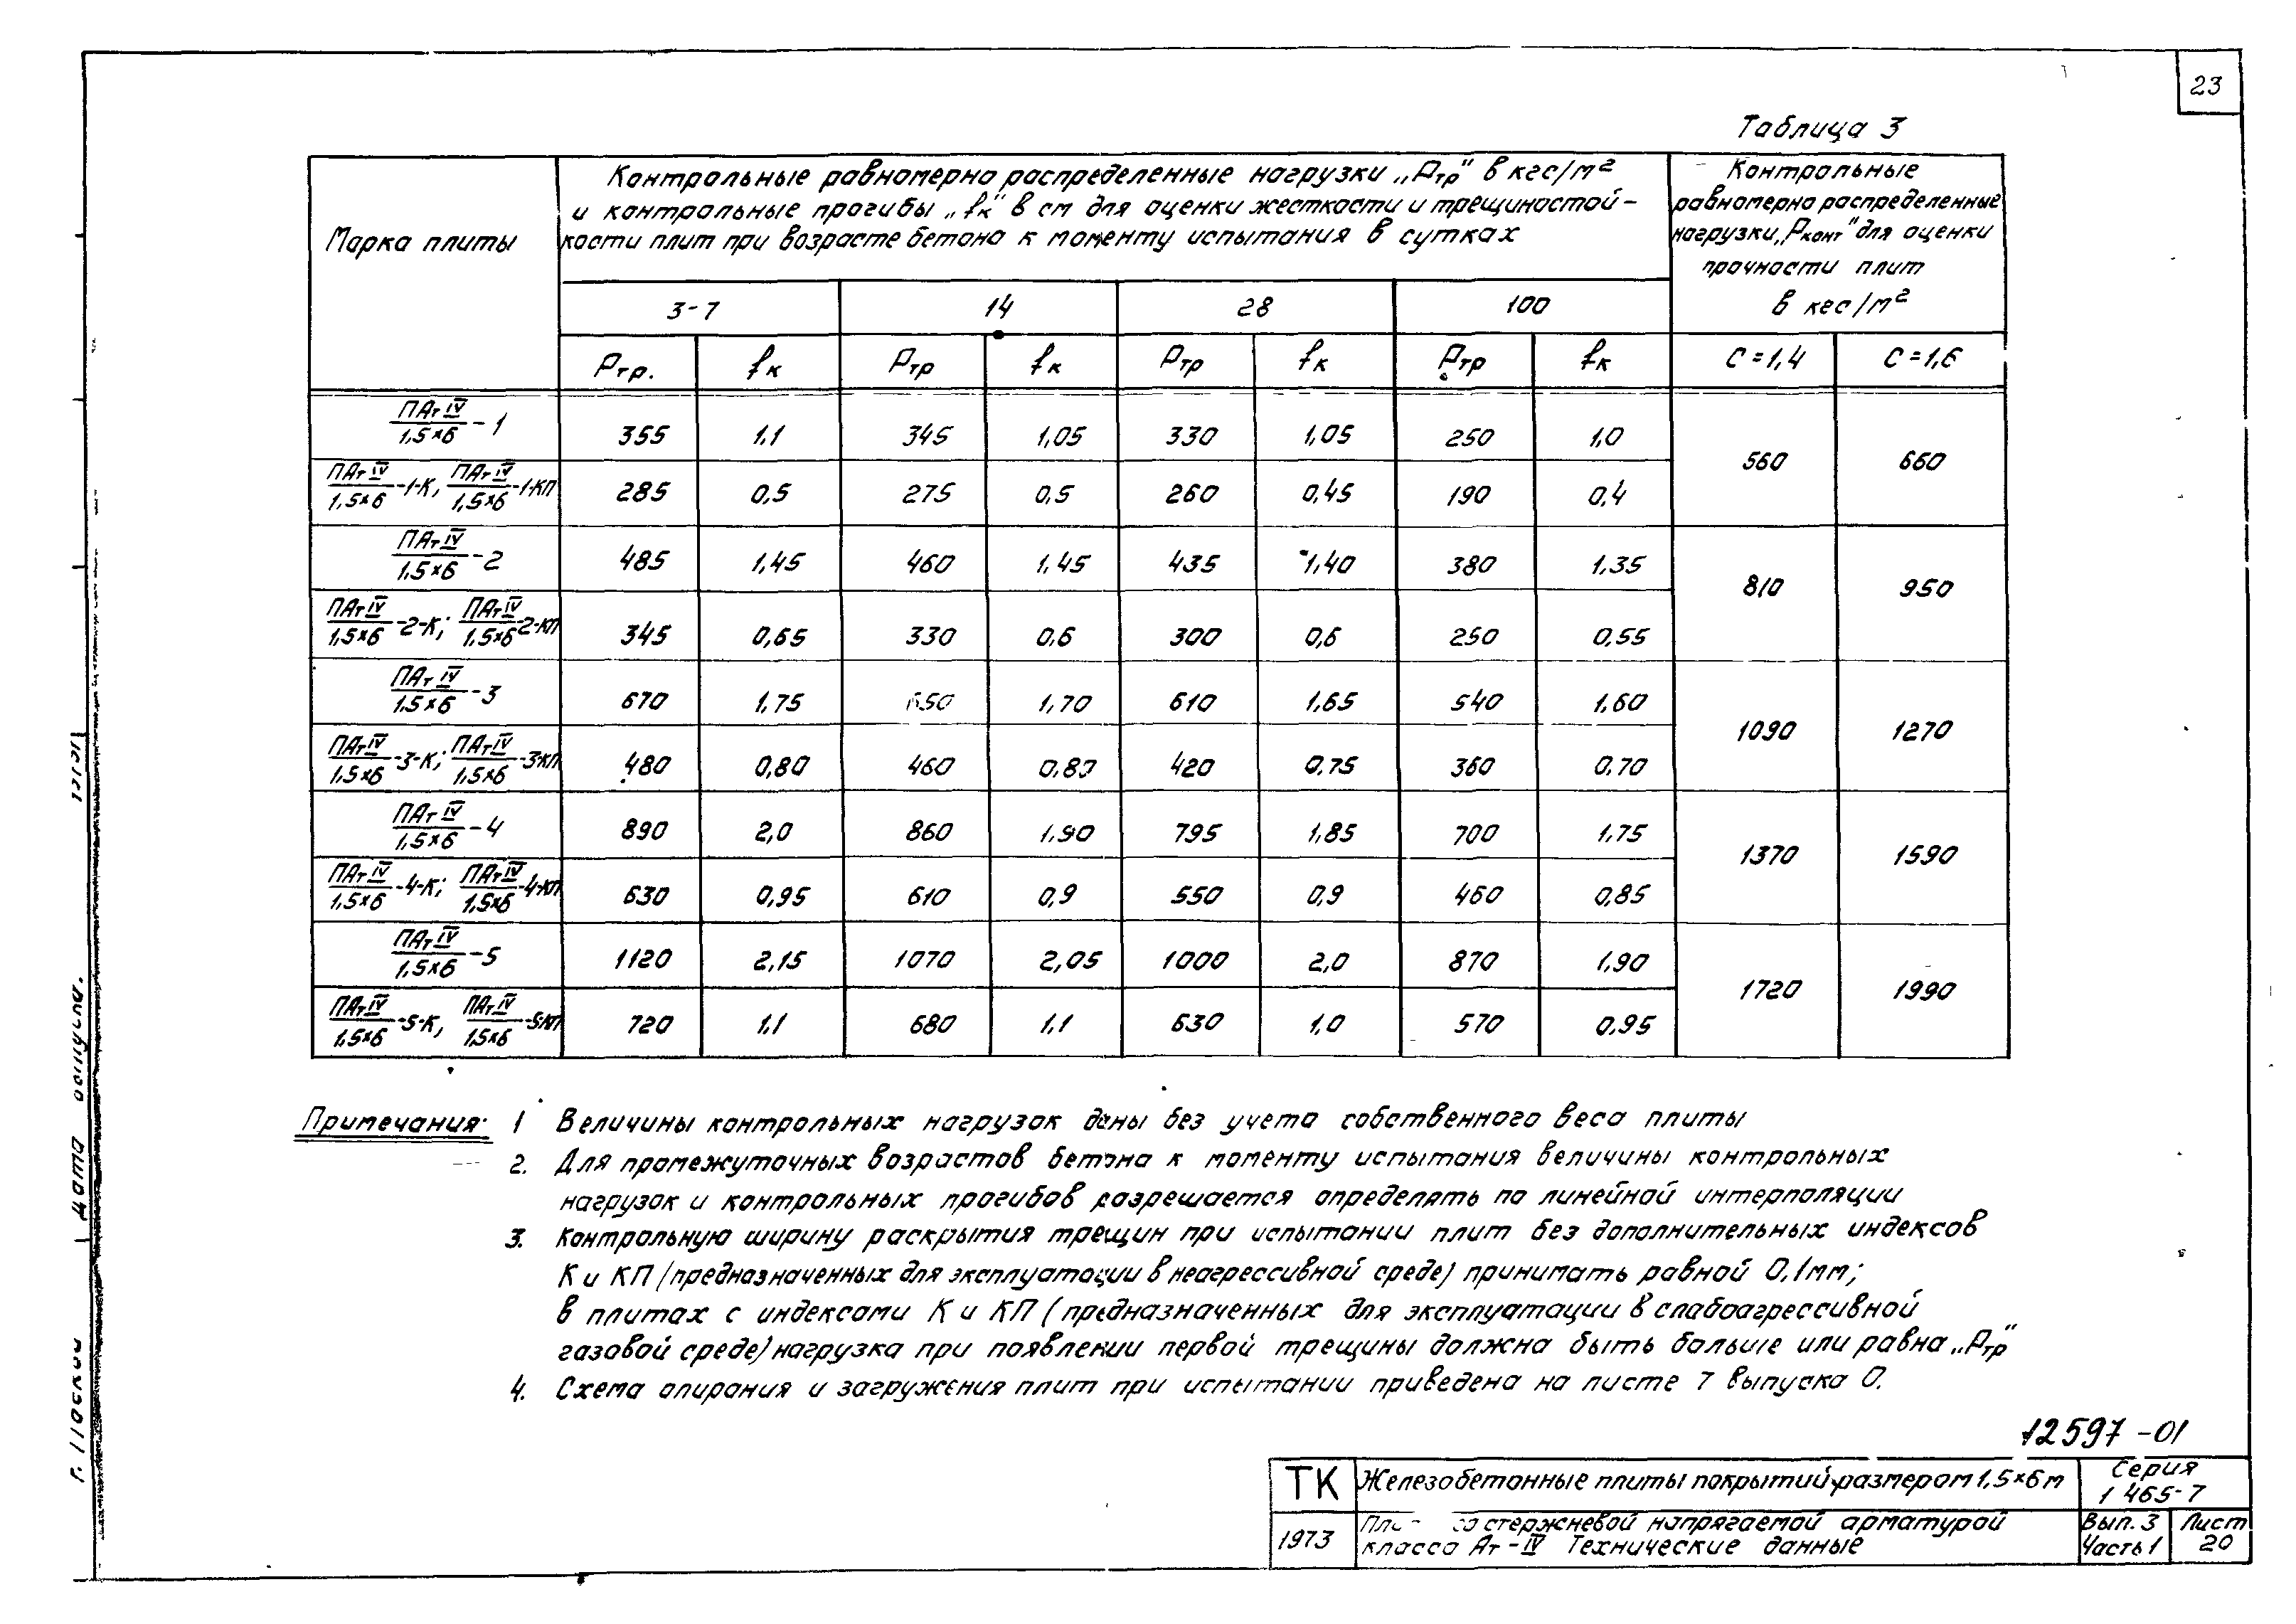 23
Таблица 3
Марка плиты
Контрольные равномерно распределенные нагрузки „Pтр" в кгс/м²
и контрольные прогибы „fк" в см для оценки жесткости и трещиностой-
кости плит при возрасте бетона к моменту испытания в сутках
Контрольные
равномерно распределенные
нагрузки „Pконт" для оценки
прочности плит
в кгс/м²
3-7 14 28 100
Pтр. fк Pтр fк Pтр fк Pтр fк C=1,4 C=1,6
ПАтIV/1,5×6-1 355 1,1 345 1,05 330 1,05 250 1,0 560 660
ПАтIV/1,5×6-1-К, ПАтIV/1,5×6-1-КП 285 0,5 275 0,5 260 0,45 190 0,4
ПАтIV/1,5×6-2 485 1,45 460 1,45 435 1,40 380 1,35 810 950
ПАтIV/1,5×6-2-К; ПАтIV/1,5×6-2-КП 345 0,65 330 0,6 300 0,6 250 0,55
ПАтIV/1,5×6-3 670 1,75 650 1,70 610 1,65 540 1,60 1090 1270
ПАтIV/1,5×6-3-К; ПАтIV/1,5×6-3-КП 480 0,80 460 0,80 420 0,75 360 0,70
ПАтIV/1,5×6-4 890 2,0 860 1,90 795 1,85 700 1,75 1370 1590
ПАтIV/1,5×6-4-К; ПАтIV/1,5×6-4-КП 630 0,95 610 0,9 550 0,9 460 0,85
ПАтIV/1,5×6-5 1120 2,15 1070 2,05 1000 2,0 870 1,90 1720 1990
ПАтIV/1,5×6-5-К, ПАтIV/1,5×6-5-КП 720 1,1 680 1,1 630 1,0 570 0,95
Примечания: 1 Величины контрольных нагрузок даны без учета собственного веса плиты
2. Для промежуточных возрастов бетона к моменту испытания величины контрольных
нагрузок и контрольных прогибов разрешается определять по линейной интерполяции
3. Контрольную ширину раскрытия трещин при испытании плит без дополнительных индексов
К и КП (предназначенных для эксплуатации в неагрессивной среде) принимать равной 0,1мм;
в плитах с индексами К и КП (предназначенных для эксплуатации в слабоагрессивной
газовой среде) нагрузка при появлении первой трещины должна быть больше или равна „Pтр"
4. Схема опирания и загружения плит при испытании приведена на листе 7 выпуска 0.
12597-01
ТК
Железобетонные плиты покрытий размером 1,5×6м
Серия
1 465-7
1973
со стержневой напрягаемой арматурой
класса Ат-IV Технические данные
Вып. 3
Часть 1
Лист
20
г. Москва Дата выпуска.